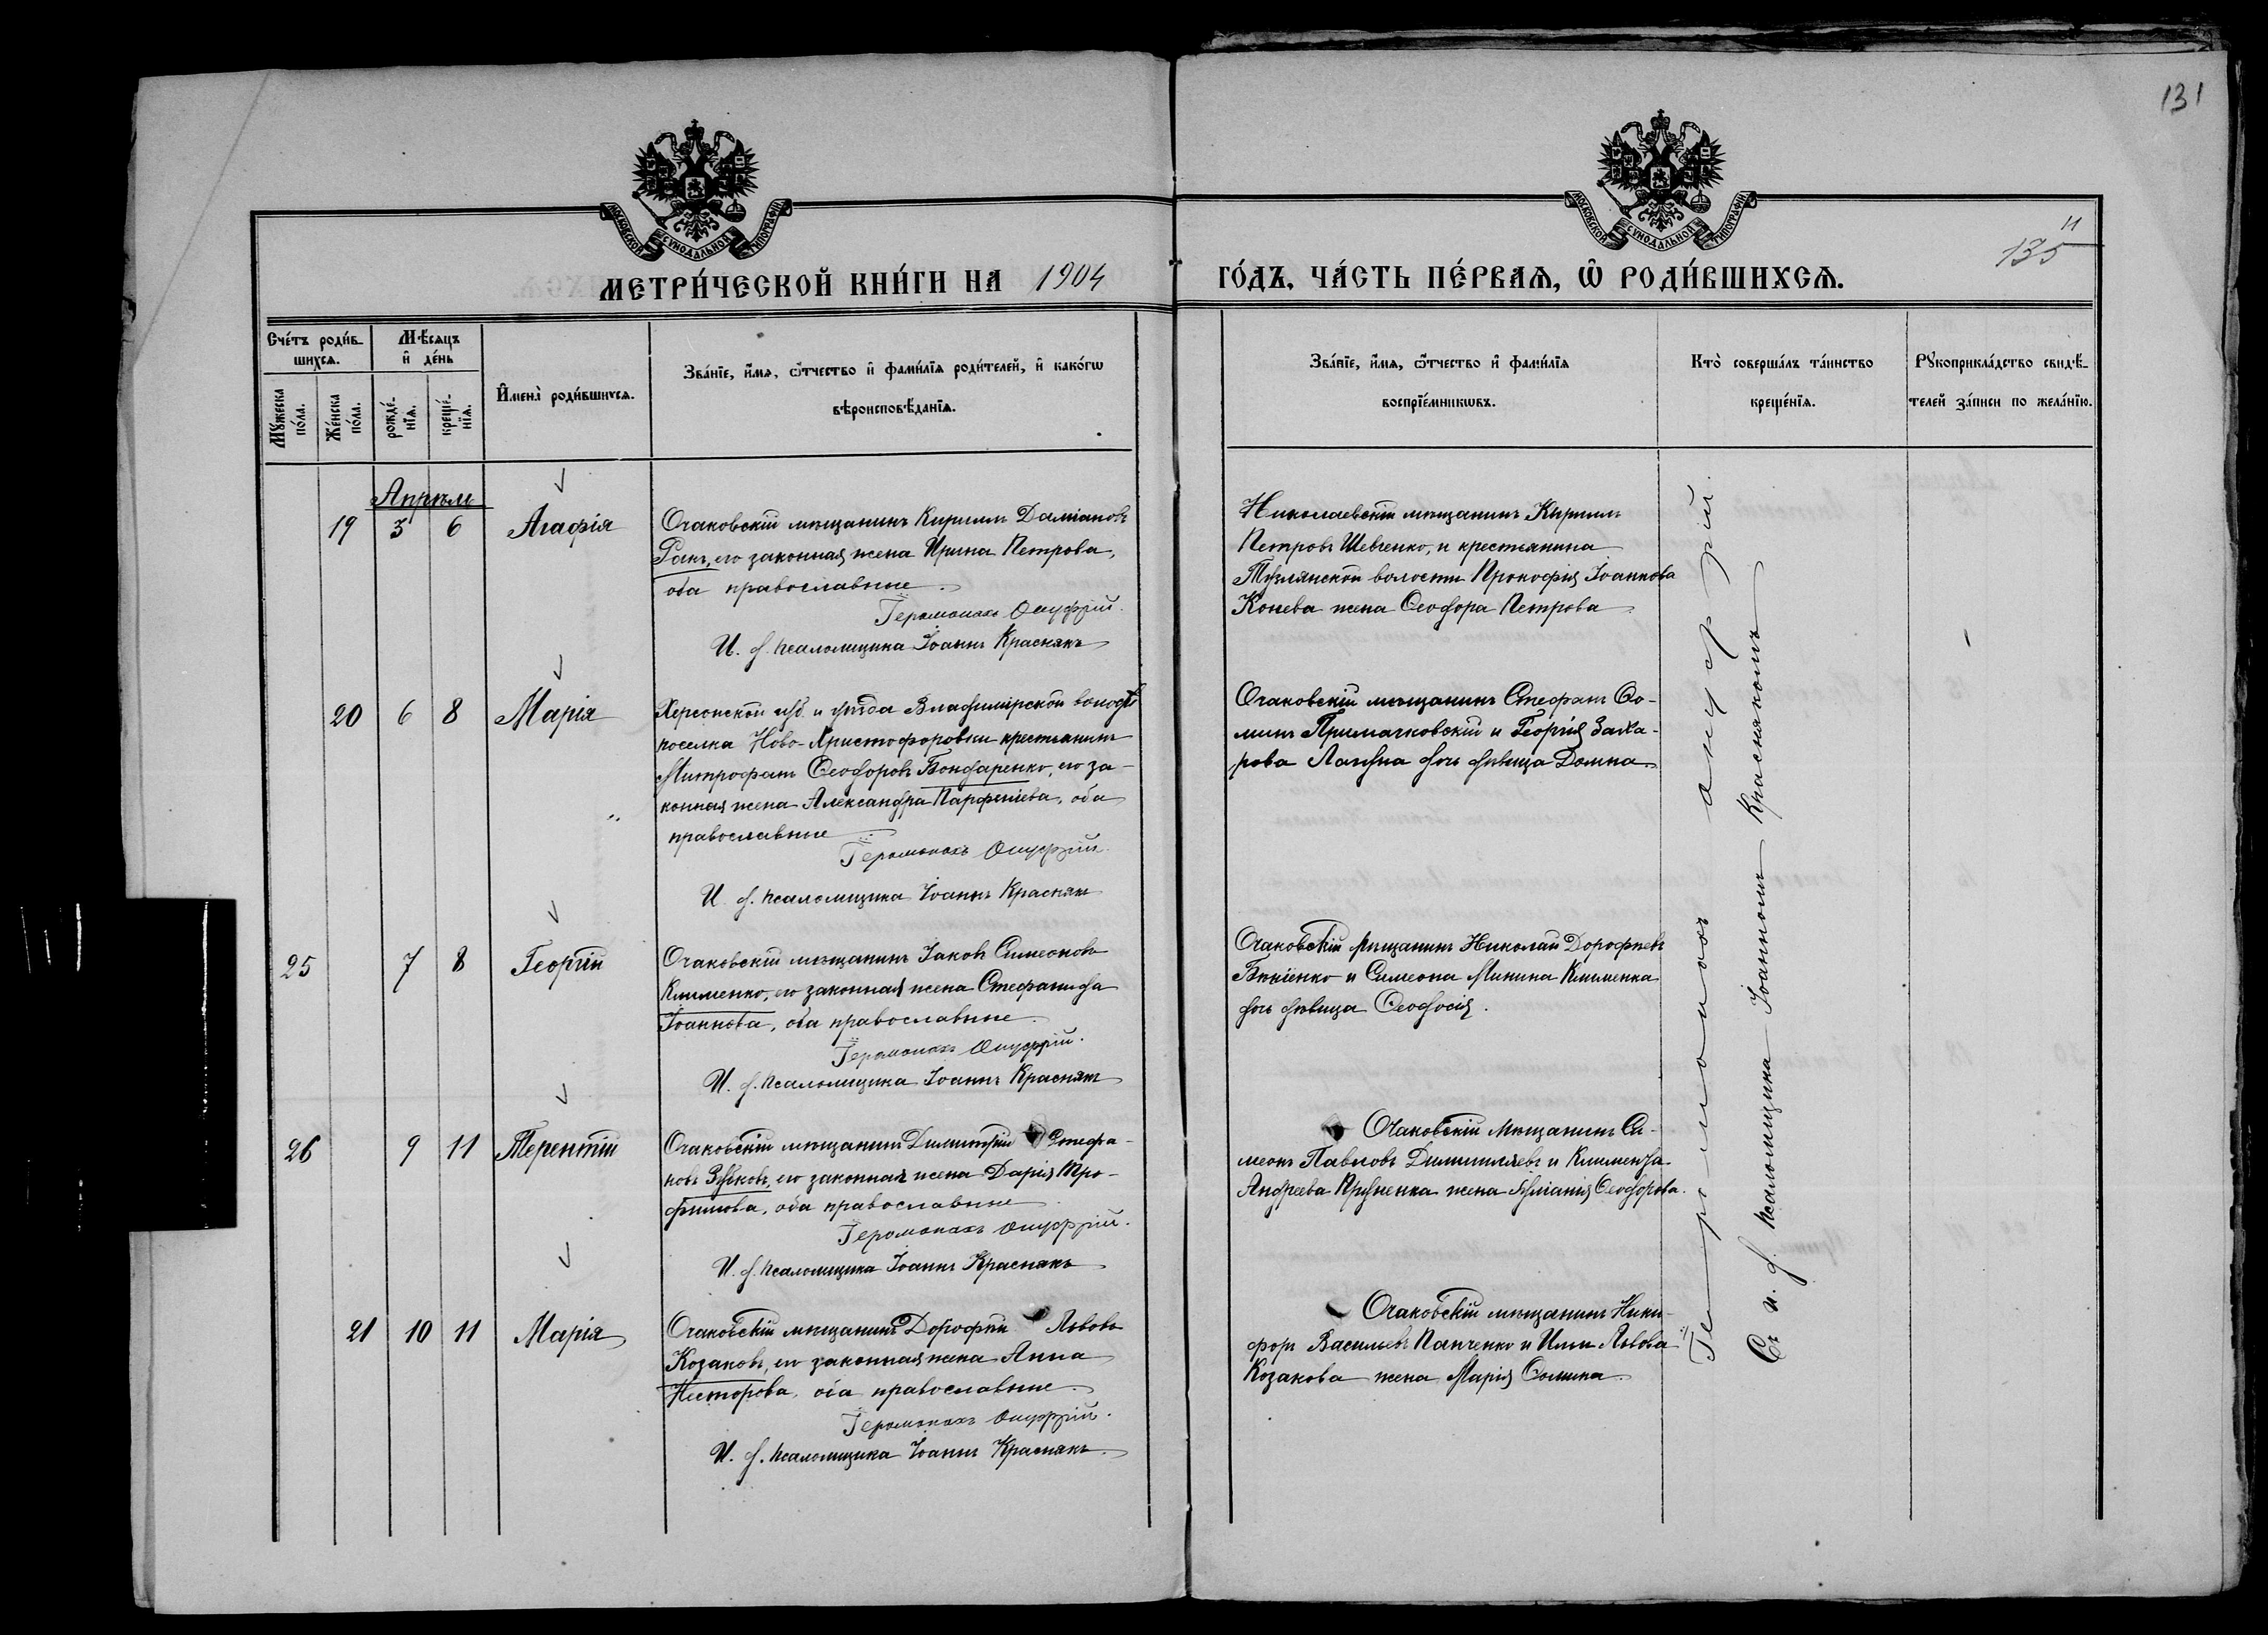 131
11
135
МОСКОВСКОЙ СѴНОДАЛЬНОЙ ТИПОГРАФІИ
МОСКОВСКОЙ СѴНОДАЛЬНОЙ ТИПОГРАФІИ
МЕТРИ́ЧЕСКОЙ КНИ́ГИ НА 1904
ГО́ДЪ, ЧА́СТЬ ПЕ́РВАѦ, Ѡ҆ РОДИ́ВШИХСѦ.
Сче́тъ роди́в-
шихсѧ.
Мѣ́сяцъ
и҆ де́нь
Мꙋ́жеска
по́ла.
Же́нска
по́ла.
рожде́-
нїѧ.
креще́-
нїѧ.
И҆мена̀ роди́вшихсѧ.
Зва́нїе, и҆́мѧ, ѻ҆́тчество и҆ фами́лїѧ роди́телей, и҆ како́гѡ
вѣроисповѣ́данїѧ.
Зва́нїе, и҆́мѧ, ѻ҆́тчество и҆ фами́лїѧ
воспрїе́мникѡвъ.
Кто̀ соверша́лъ та́инство
креще́нїѧ.
Рꙋкоприкла́дство свидѣ́-
телей за́писи по жела́нїю.
Апрѣль
19 3 6 Агафія
Очаковскій мѣщанинъ Кириллъ Даміановъ
его законная жена Ирина Петрова,
оба православные
Іеромонахъ Онуфрій.
И. д. псаломщика Іоаннъ Краснякъ
Николаевскій мѣщанинъ Кириллъ
Петровъ Шевченко, и крестьянина
Тузлянской волости Прокофія Іоаннова
Конева жена Ѳеодора Петрова
20 6 8 Марія
Херсонской губ. и уѣзда Владимірской волости
поселка Ново-Христофоровки крестьянинъ
Митрофанъ Ѳеодоровъ Бондаренко, его за-
конная жена Александра Парфеніева, оба
православные
Іеромонахъ Онуфрій.
И. д. псаломщика Іоаннъ Краснякъ
Очаковскій мѣщанинъ Стефанъ Ѳо-
минъ Примачковскій и Георгія Заха-
рова дочь дѣвица Домна
25 7 8 Георгій
Очаковскій мѣщанинъ Іаковъ Симеоновъ
Клименко, его законная жена Стефанида
Іоаннова, оба православные
Іеромонахъ Онуфрій.
И. д. псаломщика Іоаннъ Краснякъ
Очаковскій мѣщанинъ Николай Дорофеевъ
и Симеона Минина Клименка
дочь дѣвица Ѳеодосія.
26 9 11 Терентій
Очаковскій мѣщанинъ Димитрій Стефа-
новъ Зубковъ, его законная жена Дарія Тро-
фимова, оба православные
Іеромонахъ Онуфрій.
И. д. псаломщика Іоаннъ Краснякъ
Очаковскій мѣщанинъ Си-
меонъ Павловъ и Климента
Андреева жена Іуліанія Ѳеодорова.
21 10 11 Марія
Очаковскій мѣщанинъ Дорофей Львовъ
Козаковъ, его законная жена Анна
Несторова, оба православные
Іеромонахъ Онуфрій.
И. д. псаломщика Іоаннъ Краснякъ
Очаковскій мѣщанинъ Ники-
форъ Васильевъ Панченко и Ильи Львова
Козакова жена Марія Ѳомина
Іеромонахъ Онуфрій.
Съ и. д. псаломщика Іоанномъ Краснякомъ